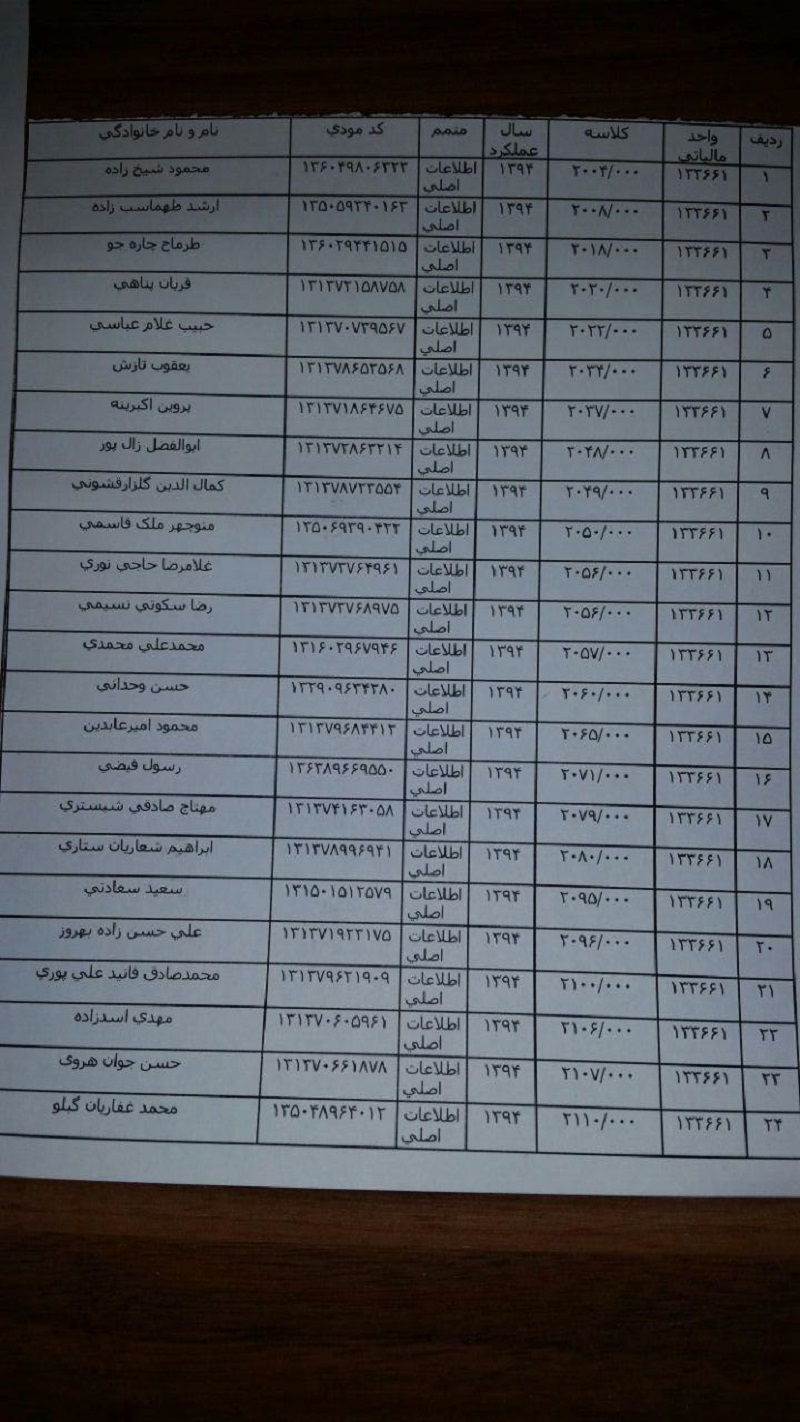 ردیف واحد مالیاتی کلاسه سال عملکرد متمم کد مودي نام و نام خانوادگي
۱ ۱۳۳۶۶۱ ۲۰۰۴/۰۰۰ ۱۳۹۴ اطلاعات اصلي محمود شیخ زاده
۲ ۱۳۳۶۶۱ ۲۰۰۸/۰۰۰ ۱۳۹۴ اطلاعات اصلي ارشد طهماسب زاده
۳ ۱۳۳۶۶۱ ۲۰۱۸/۰۰۰ ۱۳۹۴ اطلاعات اصلي طرماج چاره جو
۴ ۱۳۳۶۶۱ ۱۳۹۴ اطلاعات اصلي قربان پناهي
۵ ۱۳۳۶۶۱ ۱۳۹۴ اطلاعات اصلي حبیب غلام عباسي
۶ ۱۳۳۶۶۱ ۱۳۹۴ اطلاعات اصلي یعقوب تازش
۷ ۱۳۳۶۶۱ ۲۰۳۷/۰۰۰ ۱۳۹۴ اطلاعات اصلي پروین اکبرینه
۸ ۱۳۳۶۶۱ ۲۰۴۸/۰۰۰ ۱۳۹۴ اطلاعات اصلي ابوالفضل زال پور
۹ ۱۳۳۶۶۱ ۲۰۴۹/۰۰۰ ۱۳۹۴ اطلاعات اصلي کمال الدین گلزارقشوني
۱۰ ۱۳۳۶۶۱ ۲۰۵۰/۰۰۰ ۱۳۹۴ اطلاعات اصلي منوچهر ملک قاسمي
۱۱ ۱۳۳۶۶۱ ۲۰۵۶/۰۰۰ ۱۳۹۴ اطلاعات اصلي غلامرضا حاجي نوري
۱۲ ۱۳۳۶۶۱ ۲۰۵۶/۰۰۰ ۱۳۹۴ اطلاعات اصلي رضا سکوتي نسیمي
۱۳ ۱۳۳۶۶۱ ۲۰۵۷/۰۰۰ ۱۳۹۴ اطلاعات اصلي محمدعلي محمدي
۱۴ ۱۳۳۶۶۱ ۲۰۶۰/۰۰۰ ۱۳۹۴ اطلاعات اصلي حسن وحداني
۱۵ ۱۳۳۶۶۱ ۲۰۶۵/۰۰۰ ۱۳۹۴ اطلاعات اصلي محمود امیرعابدین
۱۶ ۱۳۳۶۶۱ ۲۰۷۱/۰۰۰ ۱۳۹۴ اطلاعات اصلي رسول فیضي
۱۷ ۱۳۳۶۶۱ ۲۰۷۹/۰۰۰ ۱۳۹۴ اطلاعات اصلي مهتاج صادقي شبستري
۱۸ ۱۳۳۶۶۱ ۲۰۸۰/۰۰۰ ۱۳۹۴ اطلاعات اصلي ۱۳۱۳۷۸۹۹۶۹۴۱ ابراهیم شعاریان ستاري
۱۹ ۱۳۳۶۶۱ ۲۰۹۵/۰۰۰ ۱۳۹۴ اطلاعات اصلي سعید سعادتي
۲۰ ۱۳۳۶۶۱ ۲۰۹۶/۰۰۰ ۱۳۹۴ اطلاعات اصلي علي حسن زاده بهروز
۲۱ ۱۳۳۶۶۱ ۲۱۰۰/۰۰۰ ۱۳۹۴ اطلاعات اصلي محمدصادق فانید علي پوري
۲۲ ۱۳۳۶۶۱ ۲۱۰۶/۰۰۰ ۱۳۹۴ اطلاعات اصلي ۱۳۱۳۷۰۶۰۵۹۶۱ مهدي اسدزاده
۲۳ ۱۳۳۶۶۱ ۲۱۰۷/۰۰۰ ۱۳۹۴ اطلاعات اصلي ۱۳۱۳۷۰۶۶۱۸۷۸ حسن جوان هروی
۲۴ ۱۳۳۶۶۱ ۲۱۱۰/۰۰۰ ۱۳۹۴ اطلاعات اصلي ۱۳۵۰۴۸۹۶۴۰۱۲ محمد غفاریان گبلو